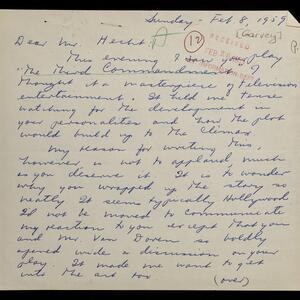 Sunday - Feb 8, 1959
[Garvey]
Dear Mr. Hecht:
12
RECEIVED
This evening I saw your play
"The Third Commandment". I
thought it a masterpiece of television
entertainment. It held me tense
watching for the development in
your personalities and how the plot
would build up to the climax.
My reason for writing this,
however, is not to applaud, much
as you deserve it. It is to wonder
why you wrapped up the story so
neatly. It seems typically Hollywood.
I'd not be moved to communicate
my reaction to you except that you
and Mr. Van Doren so boldly
opened wide a discussion on your
play. It made me want to get
into the act too
(over)